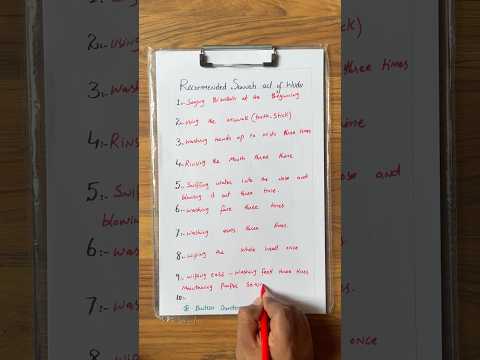 Recommended Sunnah act of Wudu
1:- Saying Bismillah at the Beginning
2:- Using the miswak (tooth-stick)
3:- Washing hands up to wrists three times
4:- Rinsing the Mouth three time
5:- Sniffing water into the nose and
blowing it out three time.
6:- Washing face three times
7:- Washing arms three times.
8:- Wiping the whole head once
9:- Wiping ears - Washing feet three times
Maintaining Proper
10:-